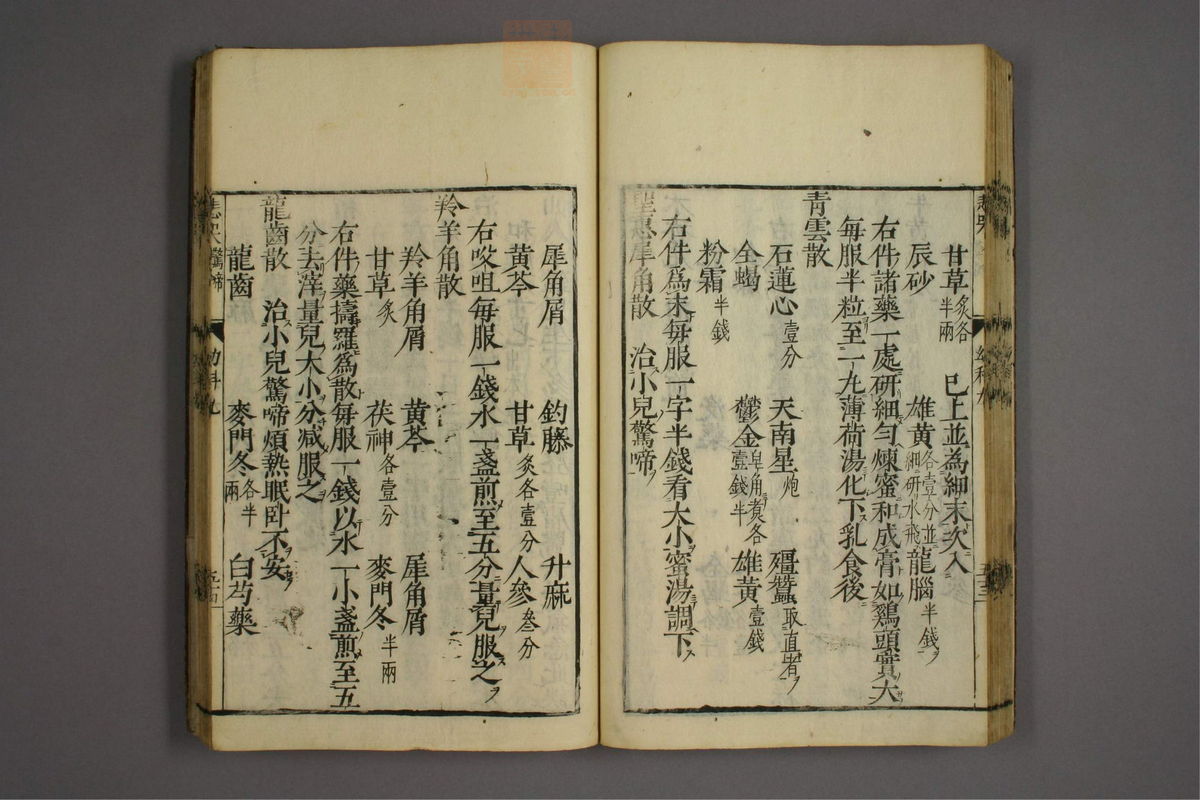 甘草炙各半兩　已上並為細末次入
辰砂　雄黃各壹分並細研水飛　龍腦半錢
右件諸藥一處研細勻煉蜜和成膏如鷄頭實大
每服半粒至一丸薄荷湯化下乳食後
青雲散
石蓮心壹分　天南星炮　殭蠶取直者
全蝎　鬱金皂角煑各壹錢半　雄黃壹錢
粉霜半錢
右件為末每服一字半錢看大小蜜湯調下
聖惠犀角散　治小兒驚啼
犀角屑　釣藤　升麻
黃芩　甘草炙各壹分　人參叄分
右㕮咀每服一錢水一盞煎至五分量兒服之
羚羊角散
羚羊角屑　黃芩　犀角屑
甘草炙　茯神各壹分　麥門冬半兩
右件藥擣羅為散每服一錢以水一小盞煎至五
分去滓量兒大小分減服之
龍齒散　治小兒驚啼煩熱眠卧不安
龍齒　麥門冬各半兩　白芍藥
驚啼　幼科九　五十四